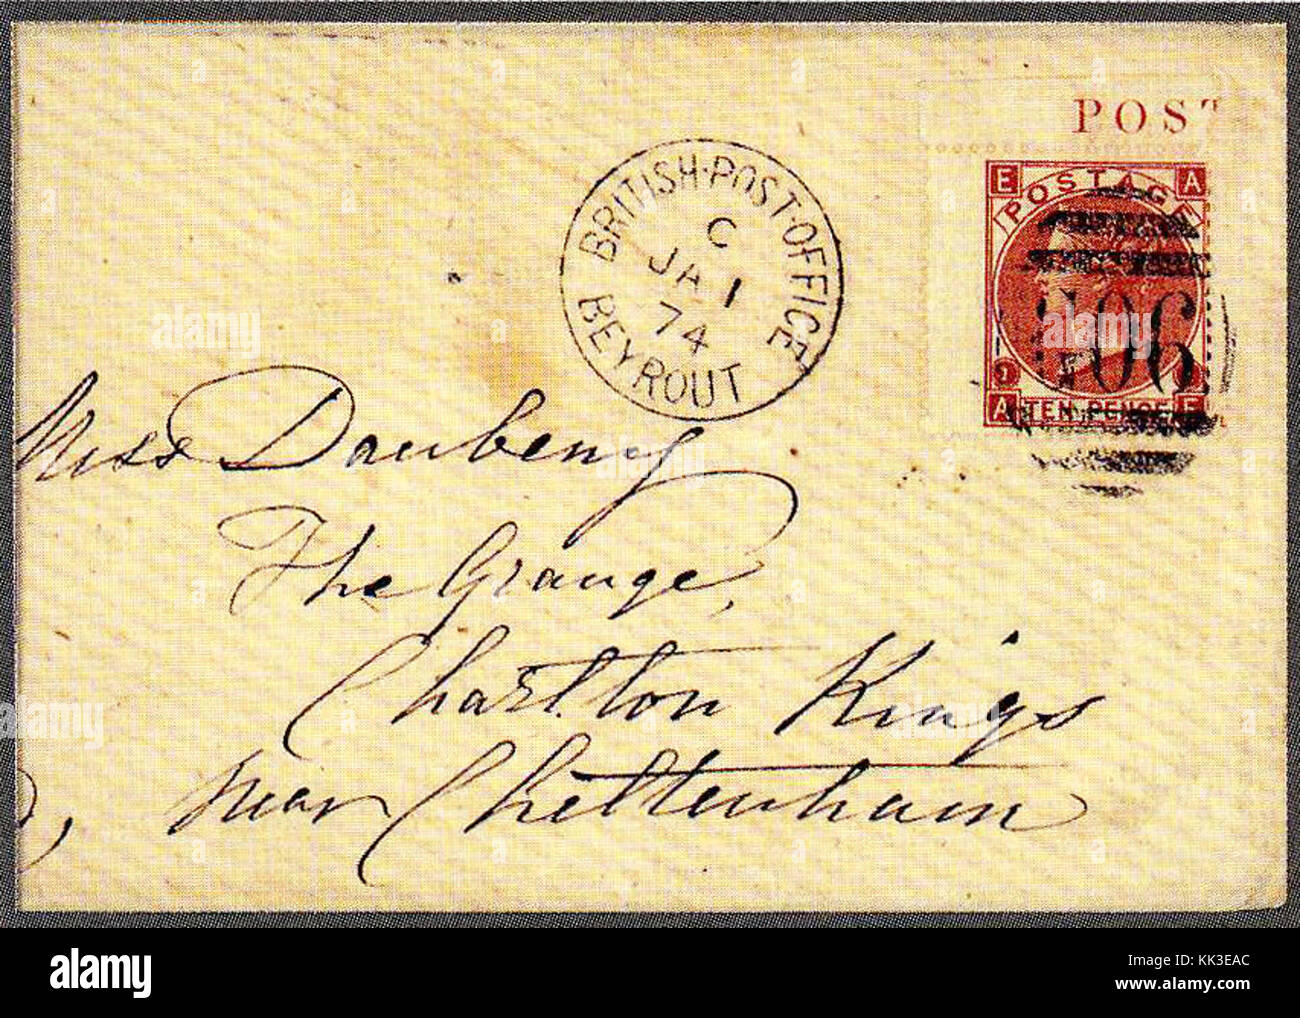 POST
E A
POSTAGE
BRITISH·POST·OFFICE
C
JA 1
74
BEYROUT
G06
A TEN PENCE E
Miss Daubeny
The Grange,
Charlton Kings
near Cheltenham
alamy
alamy
Image ID: KK3EAC
www.alamy.com